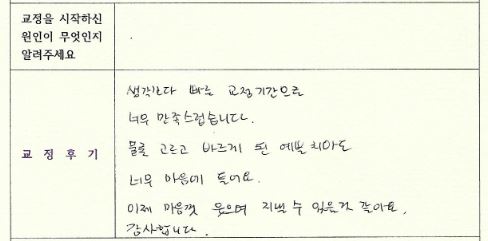 교정을 시작하신
원인이 무엇인지
알려주세요
.
생각보다 빠른 교정기간으로
너무 만족스럽습니다.
교 정 후 기
물론 고르고 바르게 된 예쁜치아도
너무 마음에 들어요.
이제 마음껏 웃으며 지낼 수 있을것 같아요.
감사합니다.